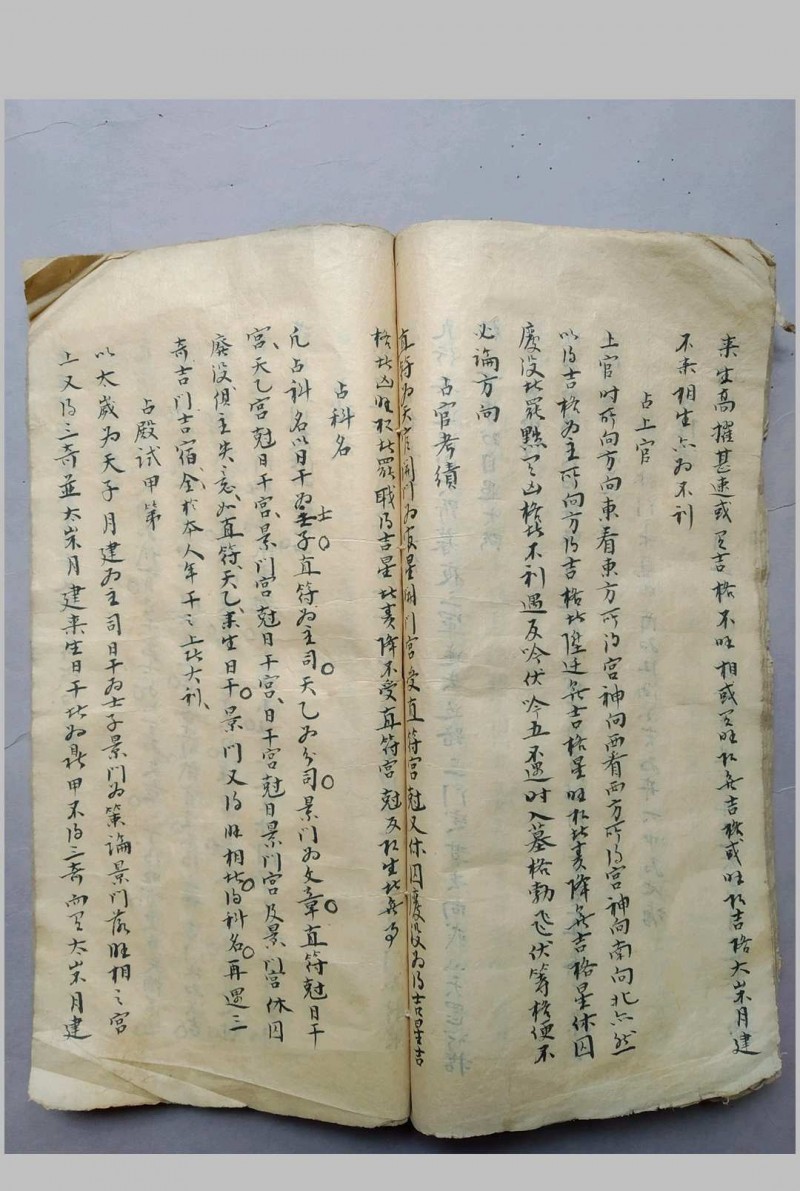 来生高擢甚速或又吉格不旺相或又旺相無吉格或旺相吉格太岁月建
不来相生亦为不利
占上官
上官时所向方向東看東方所得宫神向西看西方所得宫神向南向北亦然
以得吉格为主所向方得吉格者陞迁無吉格星旺相者亥降無吉格星休囚
廢没者罷黜又凶格者不利遇反吟伏吟五不遇时入墓格勃飞伏等格便不
必論方向
占官考績
直符为天官開门为
宫受直符宫尅又休囚廢没为得吉星吉
格者凶旺相者罷职得吉星者亥降不受直符宫尅反相生者無事
占科名
凡占科名以日干为士子直符为主司天乙为分司景门为文章直符尅日干
宫、天乙宫尅日干宫、景门宫尅日干宫、日干宫尅日景门宫及景门宫休囚
廢没俱主失意、如直符、天乙、来生日干。景门又得旺相者得科名。再遇三
奇吉门吉宿、全於本人年干之上者大利、
占殿试甲第
以太歲为天子月建为主司日干为士子景门为策論景门落旺相之宫
上又得三奇並太岁月建来生日干者为鼎甲不得三奇而又太岁月建